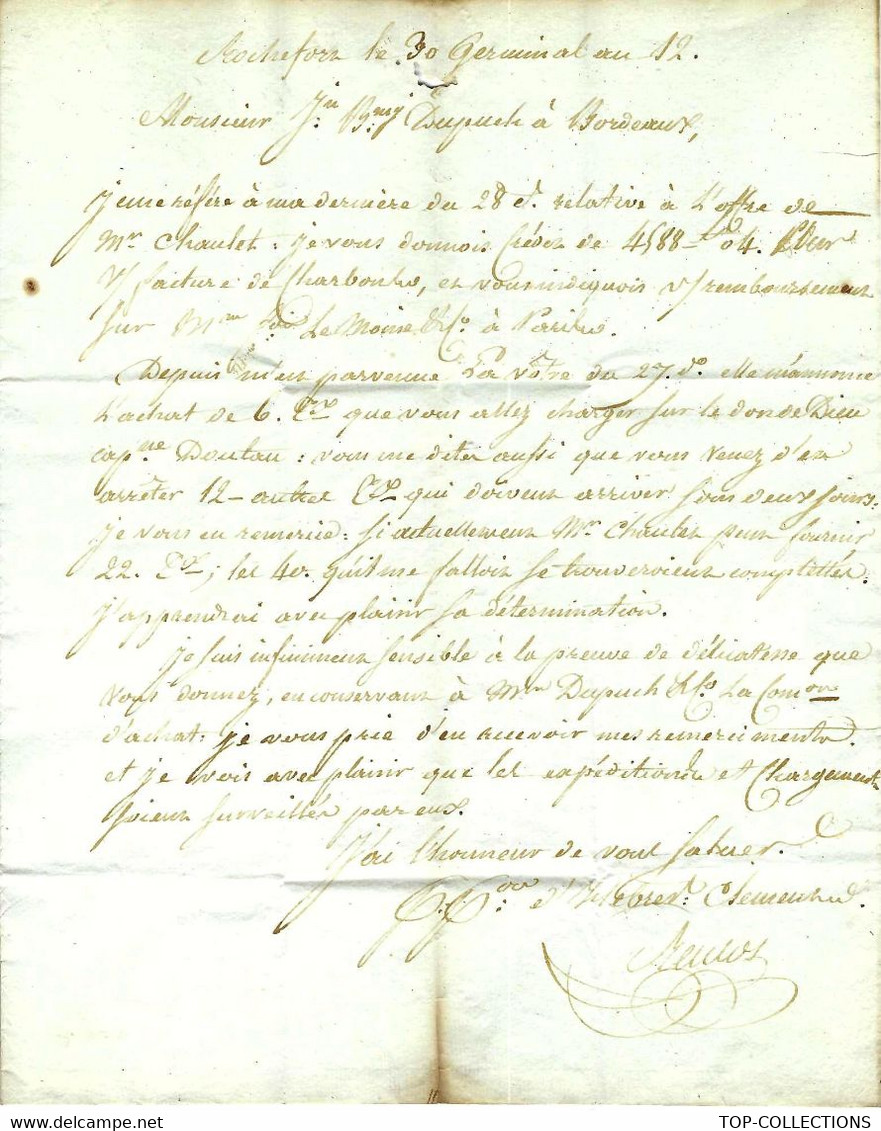 Rochefort le 30 Germinal an 12.
Monsieur Jn. Bmy Dupuch à Bordeaux,
je me réfère à ma dernière du 28 dt. relative à l'offre de
Mr Chaulet : je vous donnois Crédit de 4588 04. pour
v/ facture de Charbons, et vous indiquois v/ remboursement
sur Le Moine & Co. à Paris.
Depuis m'est parvenue La vôtre du 27. do. elle m'annonce
L'achat de 6. que vous allez charger sur le don de Dieu
cap.ne Doutau : vous me dites aussi que vous venez d'en
arrêter 12 autres qui doivent arriver sous deux jours :
je vous en remercie : si actuellement Mr Chaulet peut fournir
22. ; les 40. qu'il me falloit se trouveroient complettés.
J'apprendrai avec plaisir sa détermination.
Je suis infiniment sensible à la preuve de délicatesse que
vous donnez, en conservant à Mrs Dupuch & Co La Comon
d'achat : je vous prie d'en recevoir mes remerciments.
et je vois avec plaisir que les expéditions et Chargements
soient surveillés par eux.
J'ai l'honneur de vous saluer.
P. P.on d'
TOP-COLLECTIONS